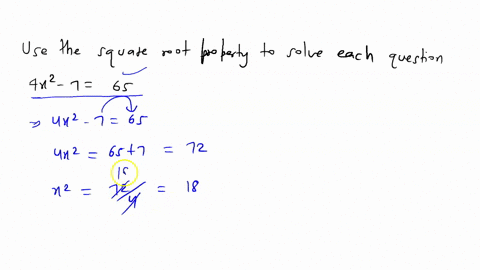 Use the square root property to solve each question
4x² - 7 = 65
⇒ 4x² - 7 = 65
4x² = 65 + 7 = 72
18
x² = 72/4 = 18